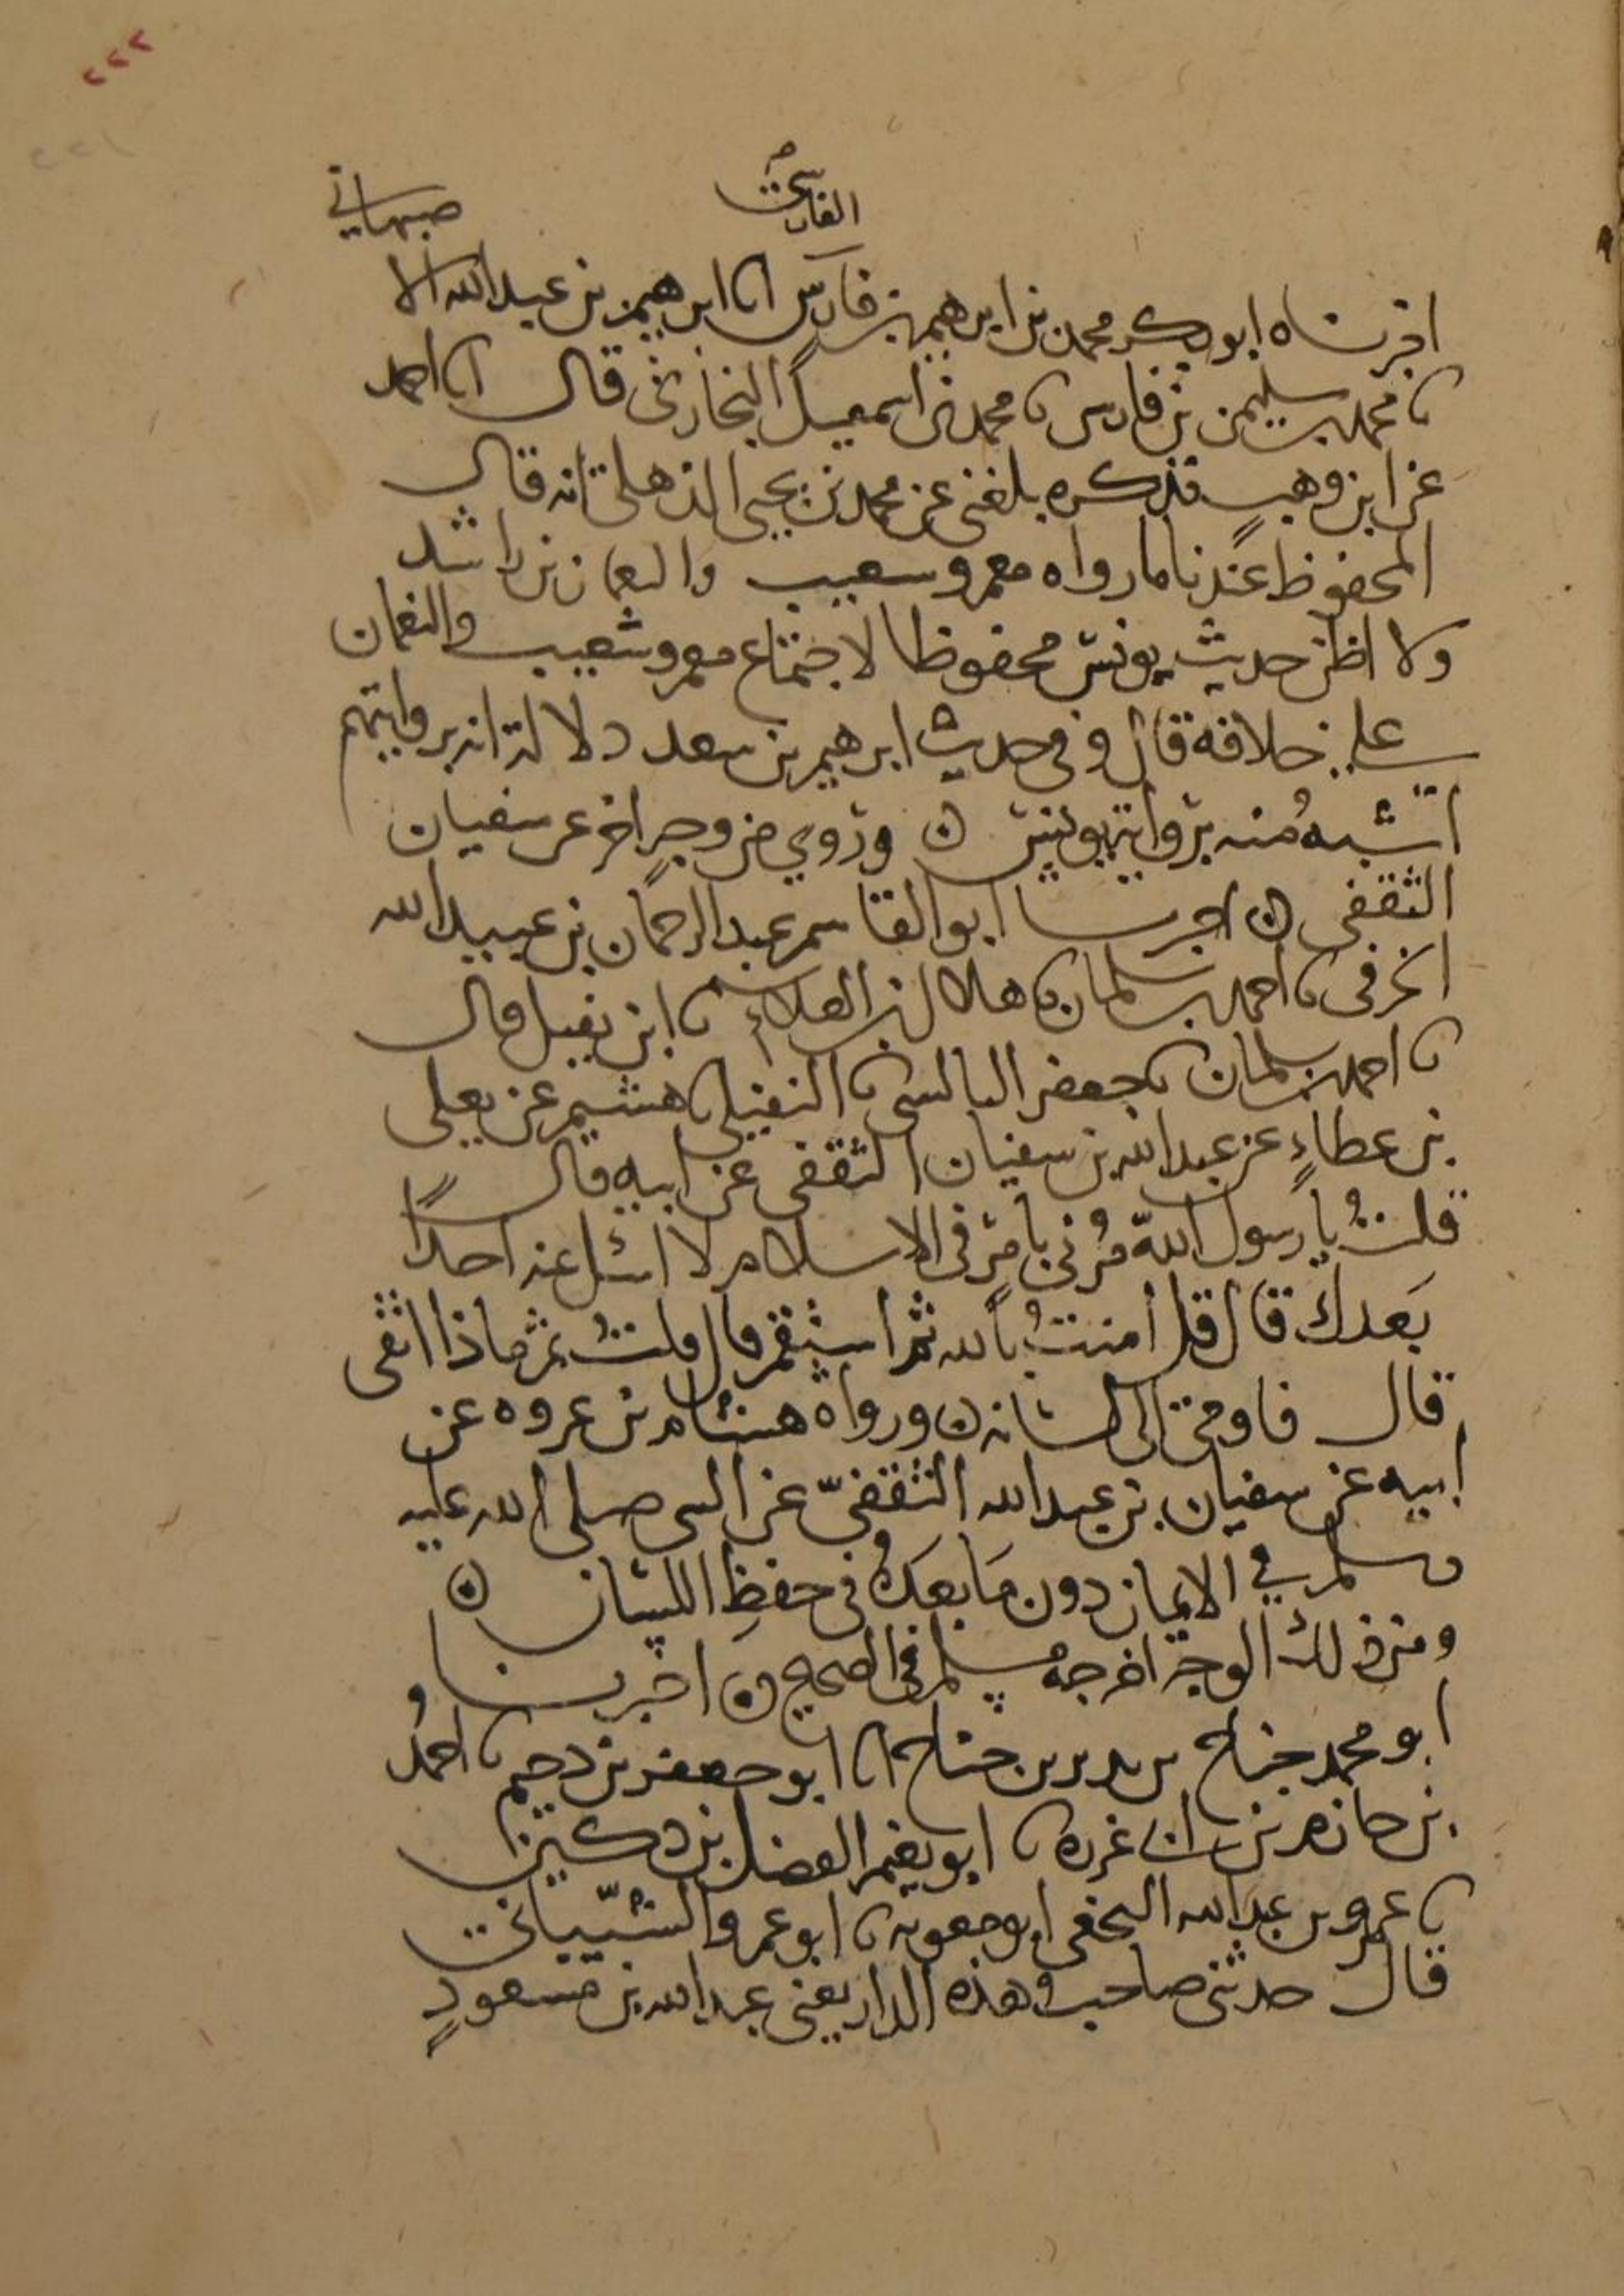 ٢٢٢
الفارسي
صبهاني
اخبرناه ابو بكر محمد بن ابراهيم بن فارس انا ابرهيم بن عبد الله الا
نا محمد بن سليمن بن فارس نا محمد بن اسمعيل البخاري قال انا احمد
عن ابن وهب فذكره بلغني عن محمد بن يحيى الذهلي انه قال
المحفوظ عندنا ما رواه معمر وسعيب والنعمان بن راشد
ولا اظن حديث يونس محفوظا لاجتماع معمر وشعيب والنعمان
على خلافه قال وفي حديث ابرهيم بن سعد دلالة انه بروايتهم
اشبه منه برواية يونس ه وروي من وجه اخر عن سفيان
الثقفي ه اخبرنا ابو القاسم عبد الرحمان بن عبيد الله
الحرفي نا احمد بن سلمان نا هلال بن العلاء نا ابن نفيل قال
نا احمد بن سلمان نا جعفر البالسي نا النفيلي نا هشيم عن يعلى
بن عطاء عن عبد الله بن سفيان الثقفي عن ابيه قال
قلت يا رسول الله مرني بامر في الاسلام لا اسئل عنه احدا
بعدك قال قل امنت بالله ثم استقم قال قلت ثم ماذا اتقي
قال فاومى الى لسانه ه ورواه هشام بن عروه عن
ابيه عن سفيان بن عبد الله الثقفي عن النبي صلى الله عليه
وسلم في الايمان دون ما بعده في حفظ اللسان ه
ومن ذلك الوجه اخرجه مسلم في الصحيح ه اخبرنا
ابو محمد جناح بن نذير بن جناح انا ابو جعفر بن دحيم نا احمد
بن حازم بن ابي غرزه نا ابو نعيم الفضل بن دكين
نا عمرو بن عبد الله النخعي ابو معويه نا ابو عمرو الشيباني
قال حدثني صاحب هذه الدار يعني عبد الله بن مسعود